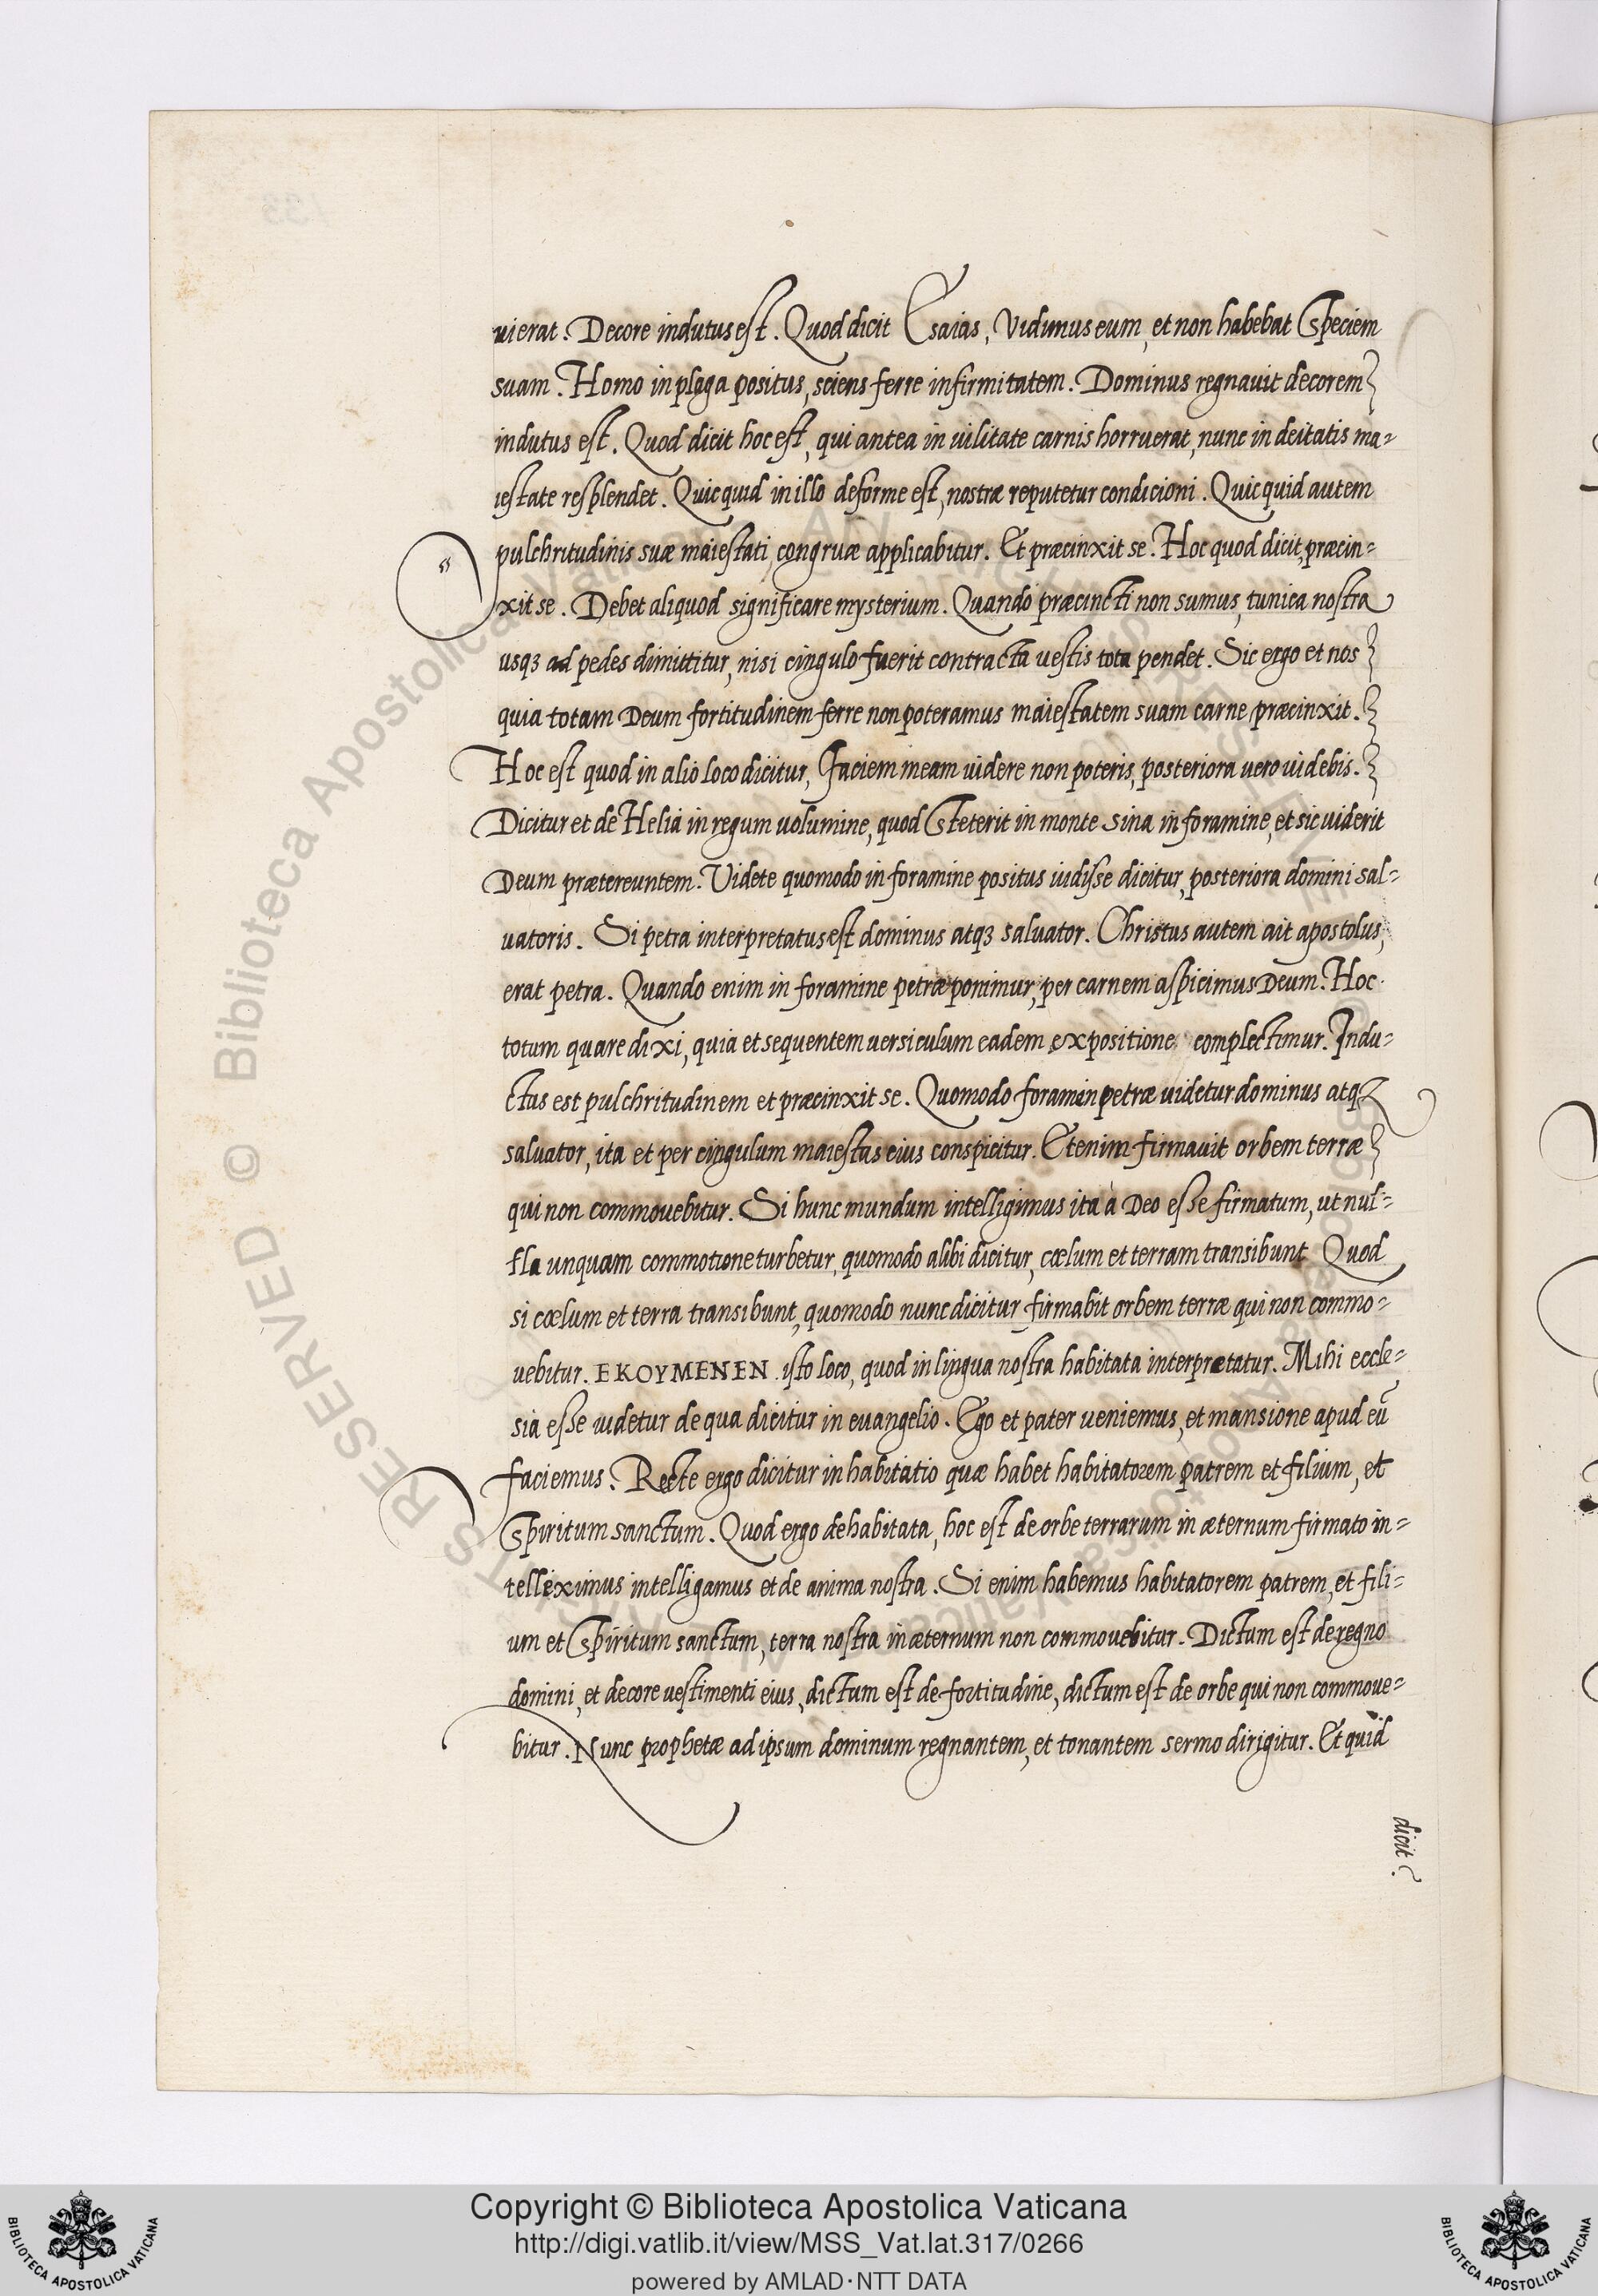 uierat. Decore indutus est. Quod dicit Esaias, Vidimus eum, et non habebat speciem
suam. Homo in plaga positus, sciens ferre infirmitatem. Dominus regnauit decorem
indutus est. Quod dicit hoc est, qui antea in uilitate carnis horruerat, nunc in deitatis ma=
iestate resplendet. Quicquid in illo deforme est, nostræ reputetur condicioni. Quicquid autem
pulchritudinis suæ maiestati, congruæ applicabitur. Et præcinxit se. Hoc quod dicit, præcin=
xit se. Debet aliquod significare mysterium. Quando præcincti non sumus, tunica nostra
usqꝫ ad pedes dimittitur, nisi cingulo fuerit contracta uestis tota pendet. Sic ergo et nos
quia totam Deum fortitudinem ferre non poteramus maiestatem suam carne præcinxit.
Hoc est quod in alio loco dicitur, Faciem meam uidere non poteris, posteriora uero uidebis.
Dicitur et de Helia in regum uolumine, quod steterit in monte Sina in foramine, et sic uiderit
Deum prætereuntem. Videte quomodo in foramine positus uidisse dicitur, posteriora domini sal=
uatoris. Si petra interpretatus est dominus atqꝫ saluator. Christus autem ait apostolus,
erat petra. Quando enim in foramine petræ ponimur, per carnem aspicimus Deum. Hoc
totum quare dixi, quia et sequentem uersiculum eadem expositione complectimur. Indu=
ctus est pulchritudinem et præcinxit se. Quomodo foramin petræ uidetur dominus atqꝫ
saluator, ita et per cingulum maiestas eius conspicitur. Etenim firmauit orbem terræ
qui non commouebitur. Si hunc mundum intelligimus ita à Deo esse firmatum, ut nul=
la unquam commotione turbetur, quomodo alibi dicitur, cœlum et terram transibunt Quod
si cœlum et terra transibunt, quomodo nunc dicitur firmabit orbem terræ qui non commo=
uebitur. EKOYMENEN isto loco, quod in lingua nostra habitata interprætatur. Mihi eccle=
sia esse uidetur de qua dicitur in euangelio. Ego et pater ueniemus, et mansione apud eũ
faciemus. Recte ergo dicitur inhabitatio quæ habet habitatorem patrem et filium, et
Spiritum sanctum. Quod ergo de habitata, hoc est de orbe terrarum in æternum firmato in=
telleximus intelligamus et de anima nostra. Si enim habemus habitatorem patrem, et fili=
um et Spiritum sanctum, terra nostra in æternum non commouebitur. Dictum est de regno
domini, et decore uestimenti eius, dictum est de fortitudine, dictum est de orbe qui non commoue=
bitur. Nunc prophetæ ad ipsum dominum regnantem, et tonantem sermo dirigitur. Et quid
dicit?
Copyright © Biblioteca Apostolica Vaticana
http://digi.vatlib.it/view/MSS_Vat.lat.317/0266
powered by AMLAD·NTT DATA
BIBLIOTECA APOSTOLICA VATICANA
BIBLIOTECA APOSTOLICA VATICANA